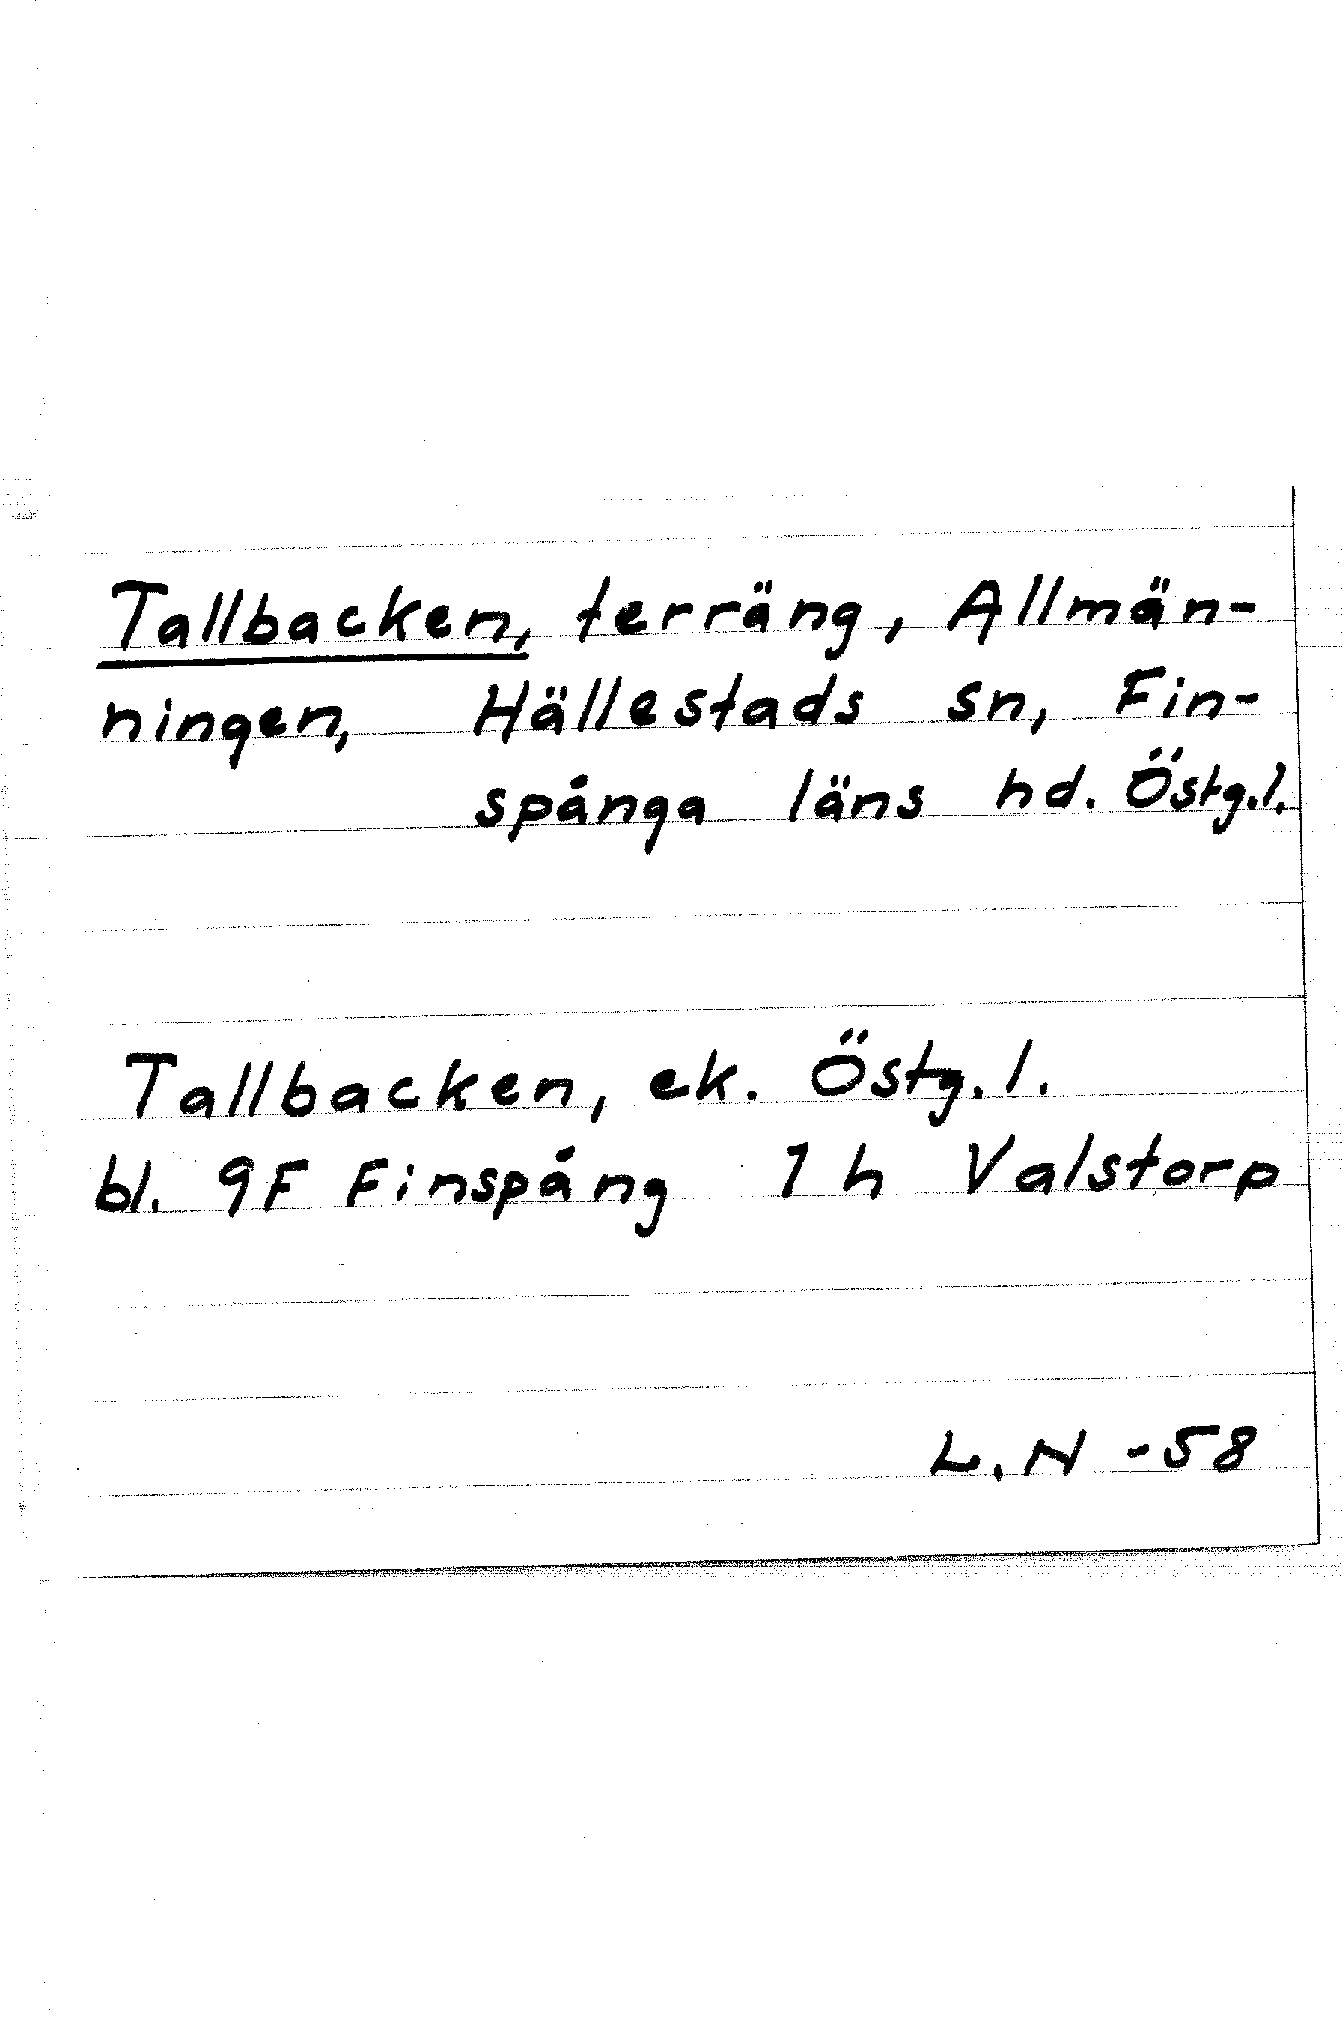 Tallbacken, terräng, Allmän-
ningen, Hällestads sn, Fin-
spånga läns hd. Östg.l.
Tallbacken, ek. Östg.l.
bl. 9F Finspång 1h Valstorp
L.N -58